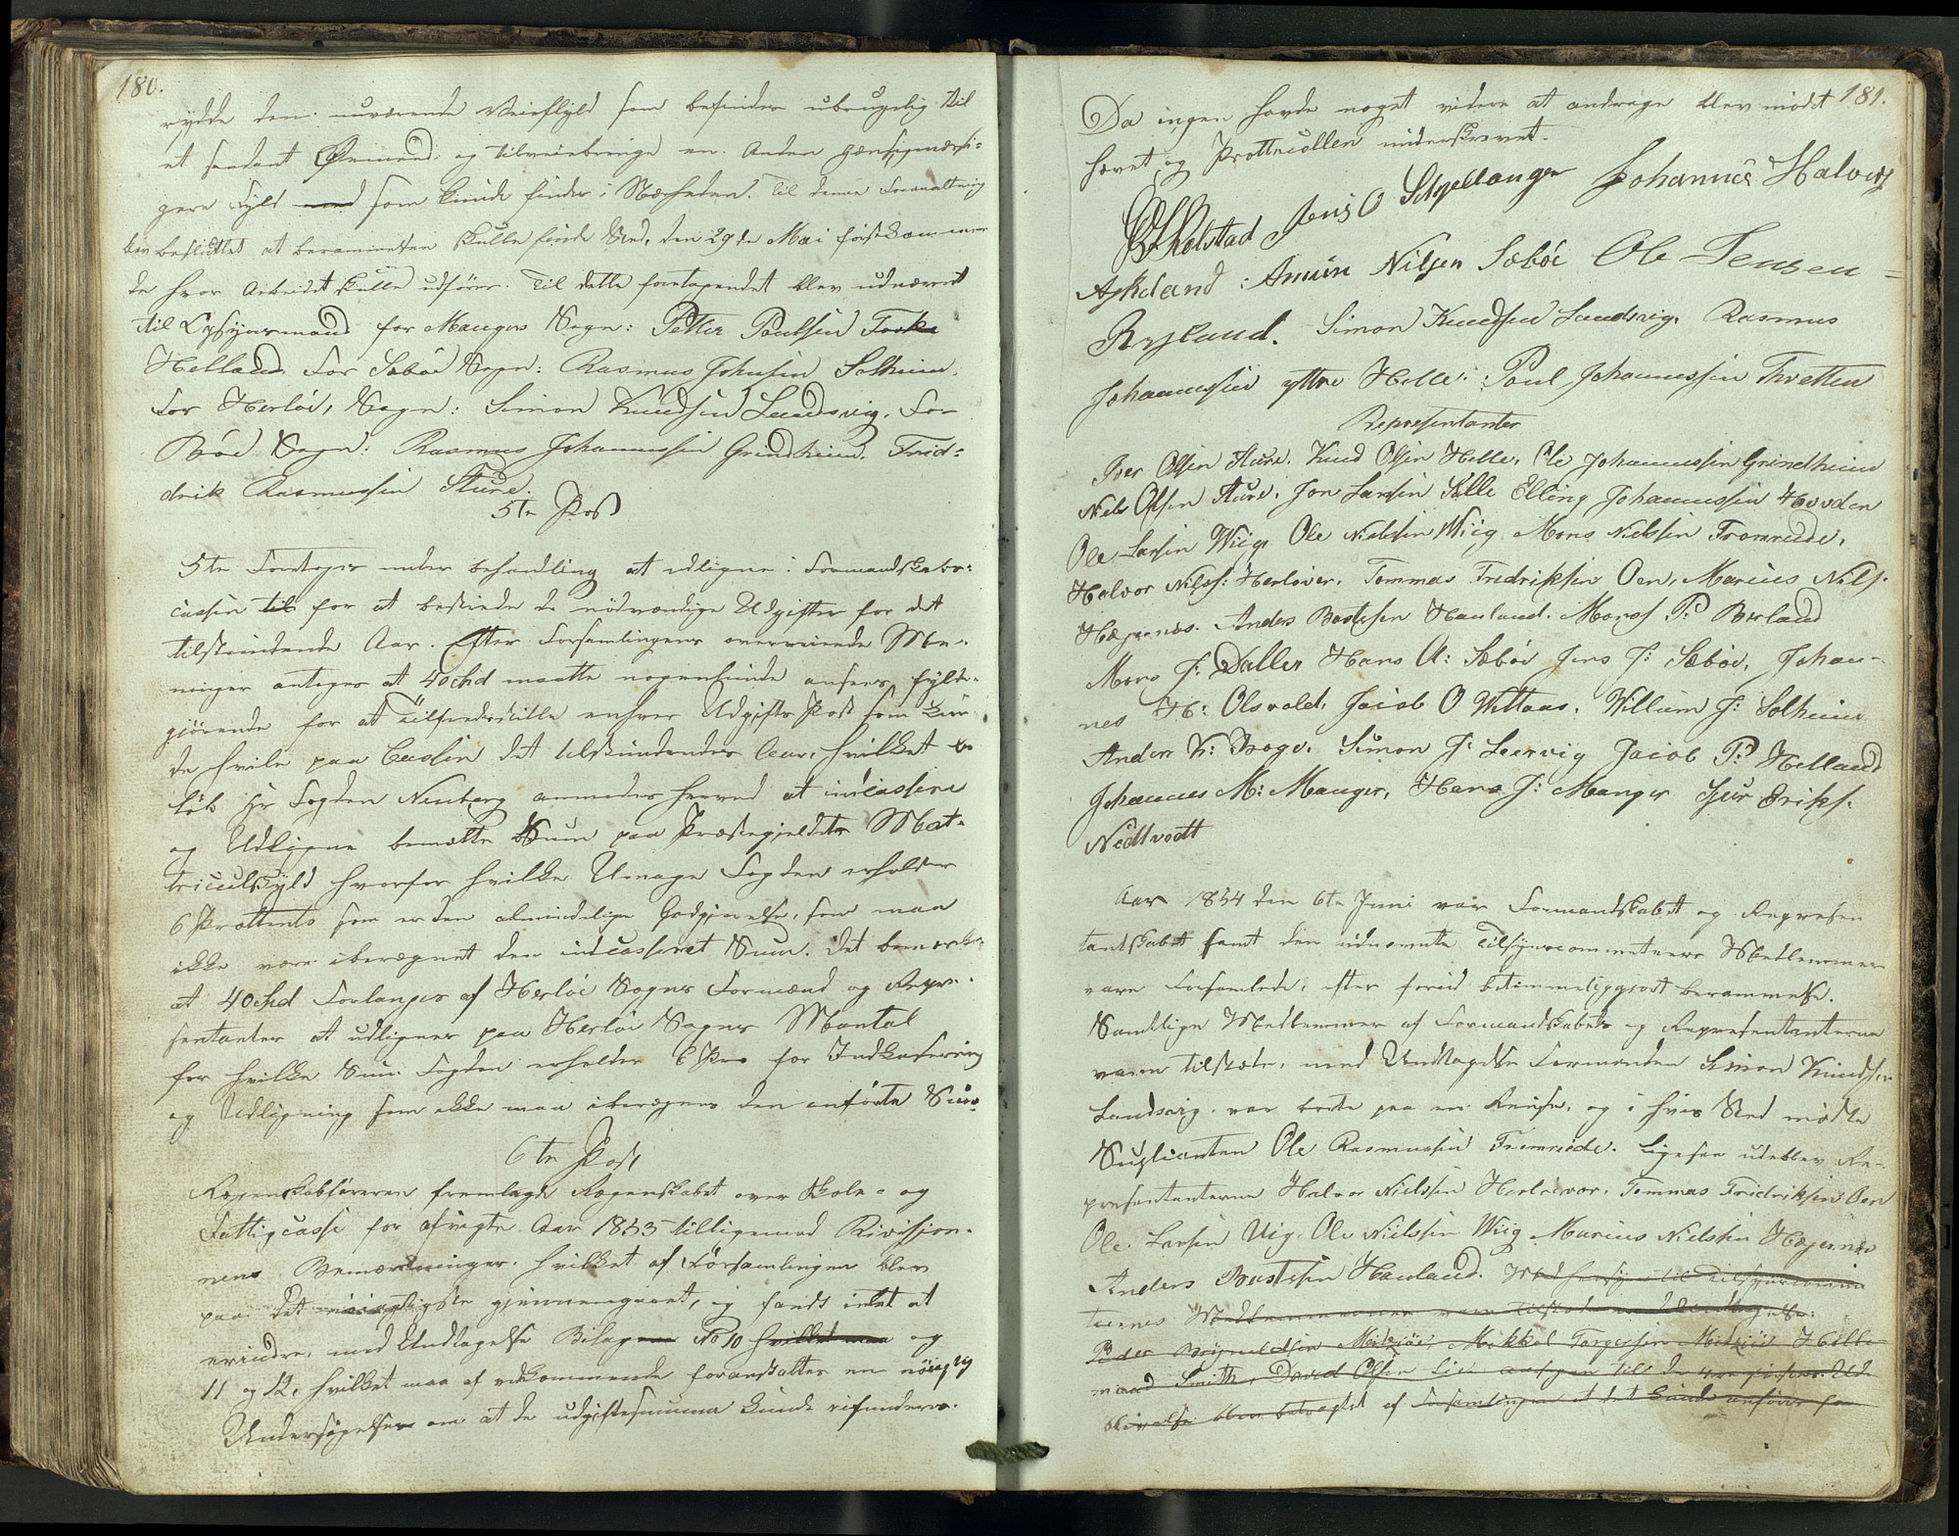 180.
rydde den nuværende Veiefyld som befindes ubrugelig til
et saadant Øiemed, og tilveiebringe en anden hensigtmæssi-
gere Fyld som kunde findes i Nærheden. Til denne Foranstaltning
blev besluttet at berammelsen skulle finde Sted, den 29de Mai førstkommen-
de hvor Arbeidet skulle udføres. Til dette foretagendet blev udnævnt
til Opsynsmænd for Mangers Sogn: Petter Poulsen Toska
Helland. For Sæbøe Sogn: Rasmus Johnsen Solheim.
For Herløe, Sogn: Simon Knudsen Landsvig. For
Bøe Sogn: Rasmus Johannessen Grindheim. Frid-
drik Rasmussen Sture.
5te Post
5te Foretoges under behandling at udligne i Formandskabs-
cassen til for at bestride de nødvendige Udgifter for det
tilstundende Aar. Efter Forsamlingens overveiende Me-
ninger antoges at 40 Spd maatte nogenlunde ansees fyldest-
gjørende for at Tilfredsstille enhver Udgifts Post som kun-
de hvile paa Cassen det tilstundendes Aar, hvilket be-
løb Hr Fogden Neuberg anmodes herved at indcassere
og Udligne bemælte Sum paa Præstegjeldets Mat-
triculskyld hvorfor hvilke Umage Fogden erholder
6 Procento som er den almindelige Godgjørelse, som maa
ikke være iberegnet den indcasseret Sum. Det bemærkes
at 40 Spd Forlanges af Herløe Sogns Formænd og Repre-
sentanter at udlignes paa Herløe Sogns Mantal
for hvilke Sum Fogden erholder 6 Pro for Indkasering
og Udligning som ikke maa iberegnes den anførte Sum.
6te Post
Regenskabsføreren fremlagde Regenskabet over Skole- og
Fattigcasse for afvigte Aar 1853 tilligemed Rivisjon-
nens Bemærkninger. hvilket af Forsamlingen blev
paa det nøiagtigste gjennemgaaet, og fandt intet at
erindre, med Undtagelse Bilag No 10 hvilket maa og
11 og 12, hvilket maa af vedkommende foranstaltes en nøiagtig
Undersøgelse om at de udgiftesumma kunde refunderes.
181.
Da ingen havde noget videre at andrage blev mødet
hævet og Prottucollen underskrevet.
Skelstad Jens O Schjellanger Johannes Halvors
Askeland: Amun Nilsen Sæbøe Ole Jensen
Rysland. Simon Knudsen Landsvig. Rasmus
Johannessen yttre Helle: Poul Johannessen Thretten
Representanter
Peer Olsen Sture. Knud Olsen Helle. Ole Johannessen Grindheim
Niels Olsen Sture. Jon Larsen Sille Elling Johannessen Hovden
Ole Larsen Wiig. Ole Nielsen Wiig Mons Nielsen Fromreide.
Halvor Nilss: Herløver. Tommas Fredriksen Oen, Marius Nils.
Hægernes. Anders Bertesen Hauland. Mons P: Berland
Mons J: Dallen Hans A: Sæbøe Jens J: Sæbøe, Johan-
nes H: Olsvold, Jacob O Wettaas. Willum J: Solheim
Anders K: Toge. Simon J: Leervig Jacob P: Helland
Johannes M: Manger, Hans J: Manger Sjur Eriks.
Nedtvedt
Aar 1854 den 6te Juni var Formandskabet og Represen
tandskabet samt den udnævnte Tilsyncommeteers Medlemmer
vare Forsamlede, efter forud betimmeliggjort berammelse.
Samtlige Medlemmer af Formandskabet og Representanterne
varen tilstæde, med Undtagelse Formanden Simon Knudsen
Landsvig. var borte paa en Reise, og i hvis Sted mødte
Suplianten Ole Rasmussen Fromreide. Ligesaa udeblev Re-
presentanterne Halvor Nielssen Herløver. Tommas Fridriksen Oen
Ole Larsen Vig. Ole Nielssen Wiig Marius Nielsen Hægernes
Anders Bertesen Hauland. Med hensyn til Tilsyncomme
teernes Medlemmerne vare tilstede med Undtagelse:
Peder Mikkel Torgersen Helle
maad Smith, David Olsen
blivelse blev betragtet af Forsamlingen at det kunde ansøres for